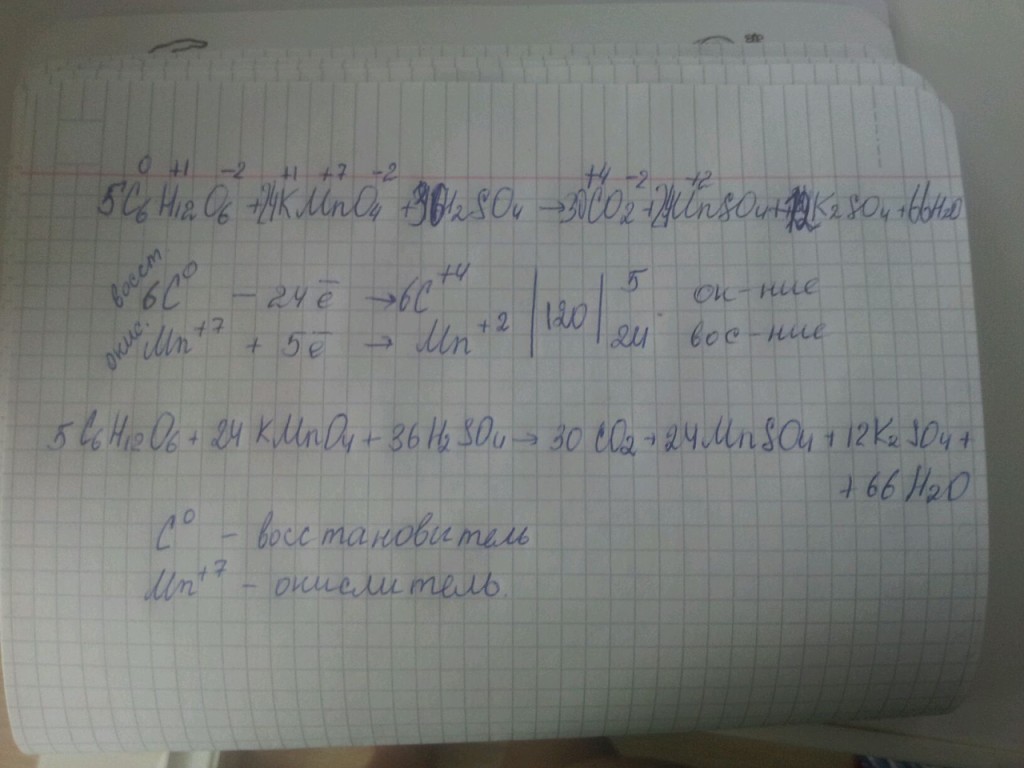 0 +1 -2 +1 +7 -2 +4 -2 +2
5C₆H₁₂O₆ + 24KMnO₄ + 36H₂SO₄ → 30CO₂ + 24MnSO₄ + 12K₂SO₄ + 66H₂O
восст. 6C⁰ - 24ē → 6C⁺⁴ | 120 | 5 ок-ние
окис. Mn⁺⁷ + 5ē → Mn⁺² 24 вос-ние
5C₆H₁₂O₆ + 24KMnO₄ + 36H₂SO₄ → 30CO₂ + 24MnSO₄ + 12K₂SO₄ +
+ 66H₂O
C⁰ - восстановитель
Mn⁺⁷ - окислитель.